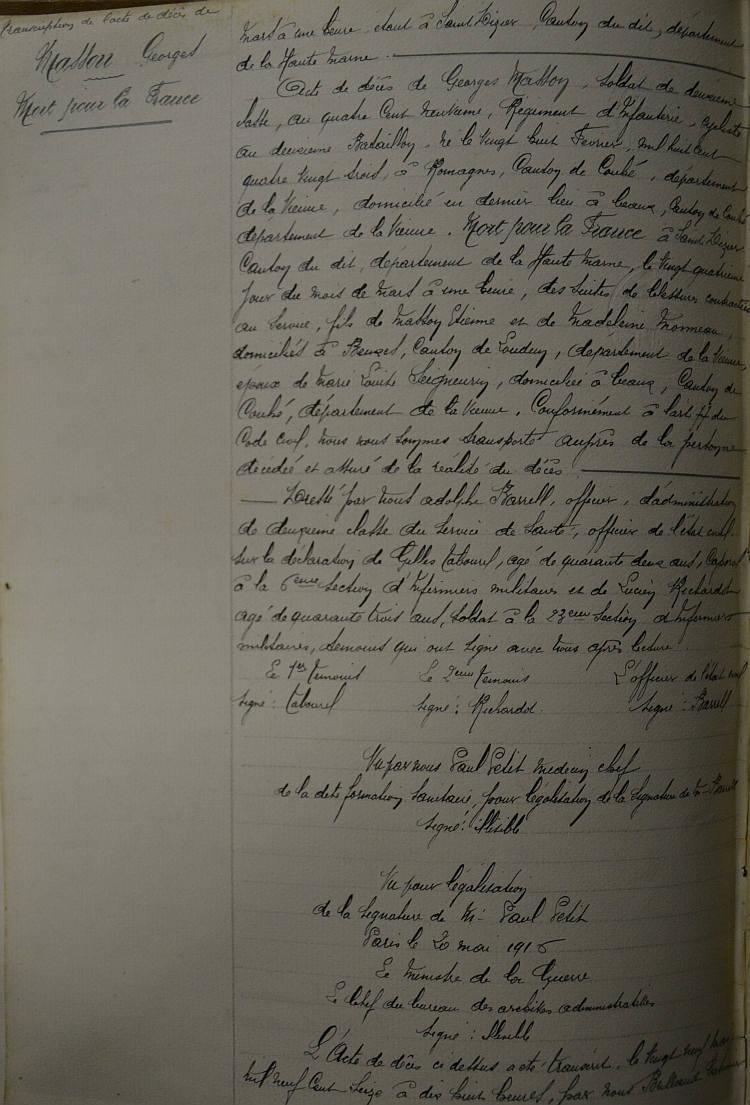 Transcription de l'acte de décès de
Masson Georges
Mort pour la France
Mars à une heure, étant à Saint Dizier, Canton du dit, département
de la Haute Marne.
Acte de décès de Georges Masson, soldat de deuxième
classe, au quatre Cent neuvième, Régiment d'Infanterie, cycliste
au deuxième Bataillon, né le vingt huit Février, mil huit cent
quatre vingt trois, à Romagnes, Canton de Couhé, département
de la Vienne, domicilié en dernier lieu à Ceaux, Canton de Couhé
département de la Vienne. Mort pour la France à Saint Dizier
Canton du dit, département de la Haute Marne, le vingt quatrième
jour du mois de Mars à une heure, des suites de blessures contractées
au service, fils de Masson Etienne et de Madeleine
domiciliés à Canton de Loudun, département de la Vienne,
époux de Marie Louise Seigneurin, domiciliée à Ceaux, Canton de
Couhé, département de la Vienne. Conformément à l'art 77 du
Code civil, nous nous sommes transporté auprès de la personne
décédée et assuré de la réalité du décès.
Dressé par nous adolphe Barrell, officier, d'administration
de deuxième classe du Service de Santé, officier de l'état civil
sur la déclaration de Gilles Tabourel, agé de quarante deux ans, Caporal
à la 6eme Section d'Infirmiers militaires et de Lucien Richardot
agé de quarante trois ans, soldat à la 23eme Section d'Infirmiers
militaires, témoins qui ont signé avec nous après lecture.
Le 1er témoins Le 2eme témoins L'officier de l'état civil
signé : Tabourel signé : Richardot. signé : Barrell
Vu par nous Paul Petit médecin chef
de la dite formation sanitaire, pour légalisation de la signature de Mr Barrell
signé : Illisible
Vu pour légalisation
de la signature de Mr Paul Petit
Paris le 20 mai 1916
Le Ministre de la Guerre
Le Chef du bureau des archives administratives
signé : Illisible
L'Acte de décès ci dessus a été transcrit, le vingt neuf mai
mil neuf Cent Seize à dix huit heures, par nous